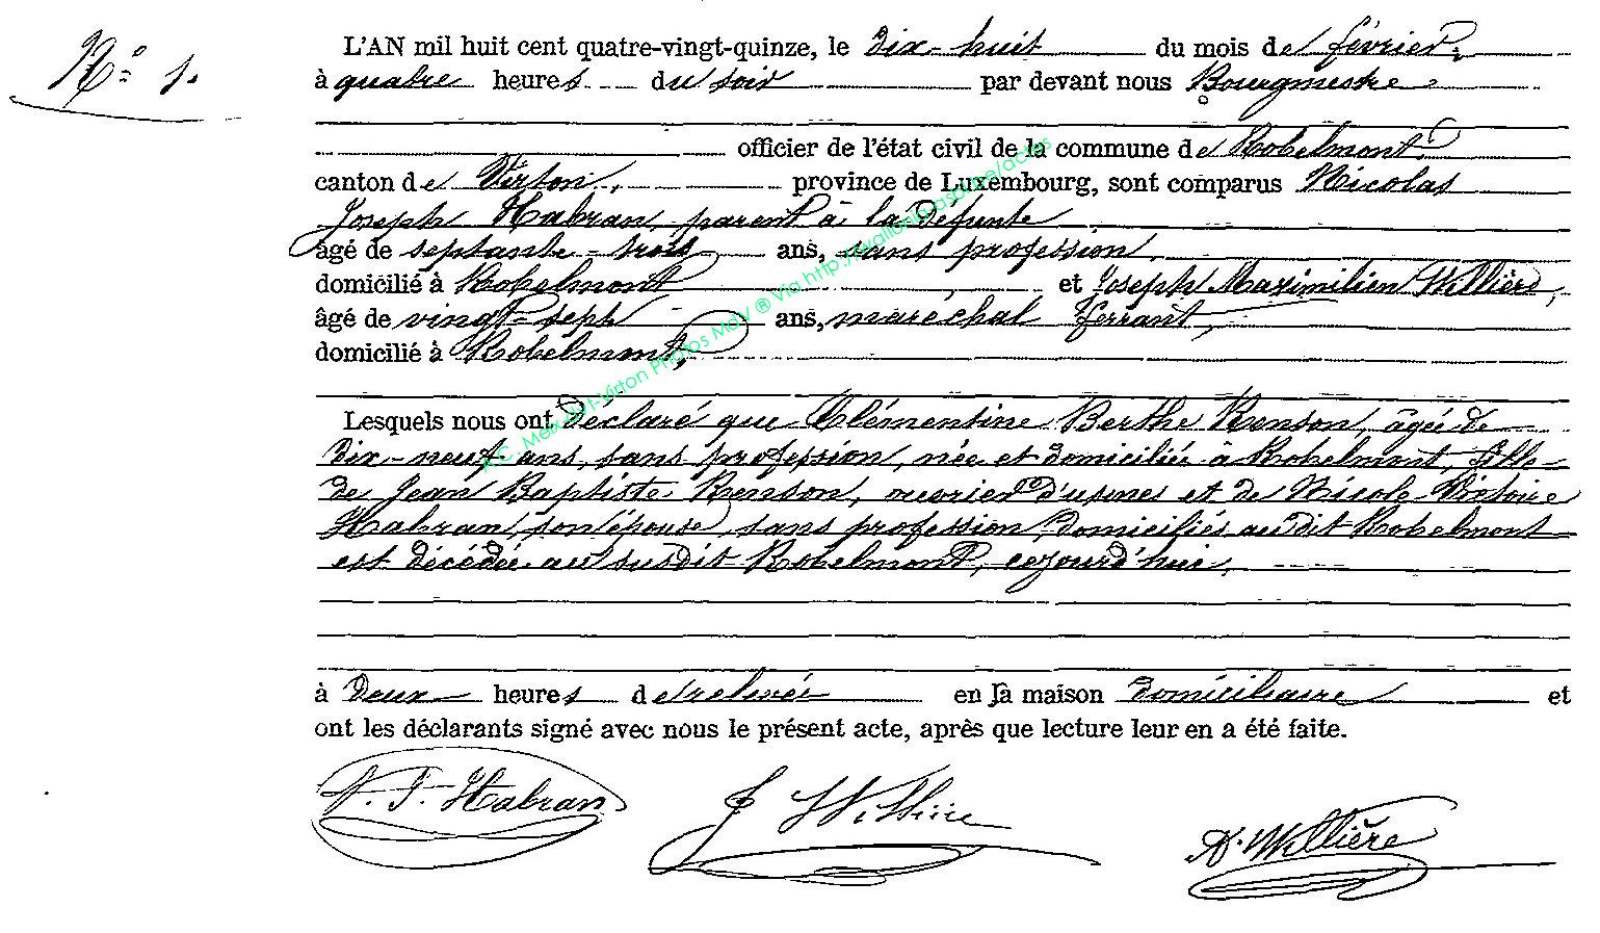 N° 1.
L'AN mil huit cent quatre-vingt-quinze, le dix-huit du mois de février,
à quatre heures du soir par devant nous Bourgmestre
officier de l'état civil de la commune de Robelmont,
canton de Virton, province de Luxembourg, sont comparus Nicolas
Joseph Habran, parent à la défunte
âgé de septante-trois ans, sans profession,
domicilié à Robelmont et Joseph Maximilien Willière,
âgé de vingt-sept ans, maréchal ferrant,
domicilié à Robelmont,
Lesquels nous ont déclaré que Clémentine Berthe Renson, âgée de
dix-neuf ans, sans profession, née et domiciliée à Robelmont, fille
de Jean Baptiste Renson, ouvrier d'usines et de Nicole Victoire
Habran, son épouse, sans profession, domiciliés au dit Robelmont
est décédée au susdit Robelmont, cejourd'hui,
à deux heures de relevée en la maison domiciliaire et
ont les déclarants signé avec nous le présent acte, après que lecture leur en a été faite.
N. J. Habran J Willière A. Willière